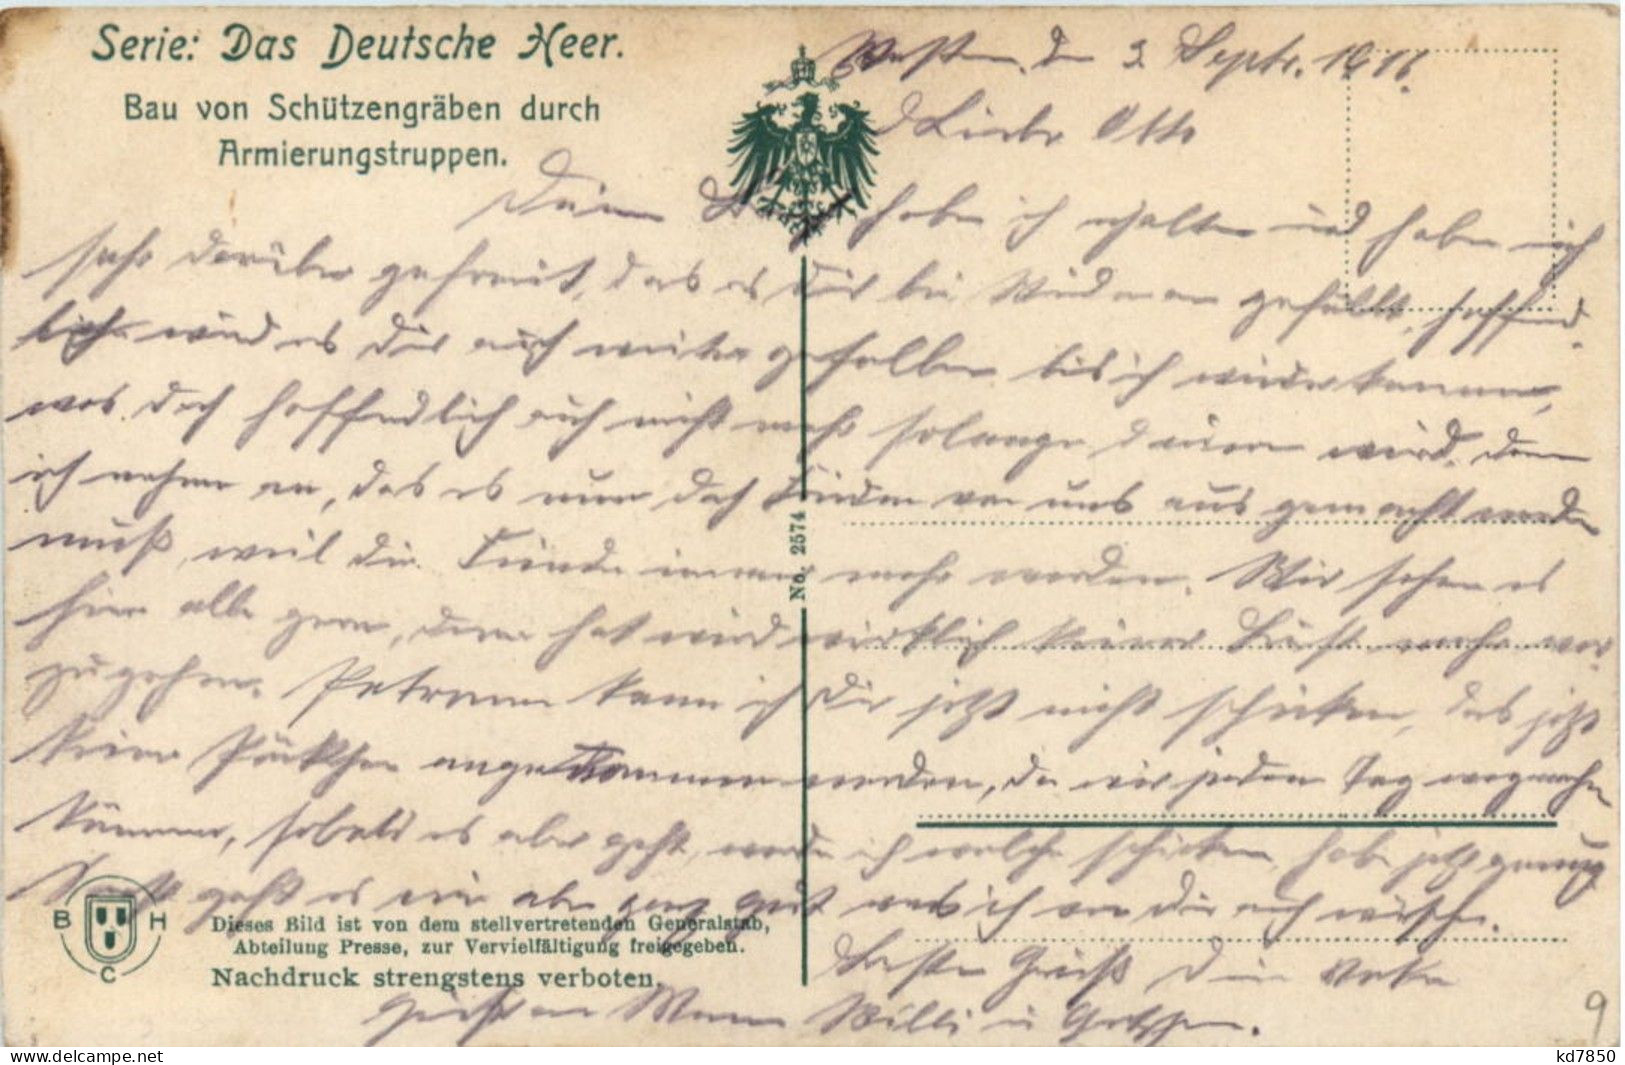 Serie: Das Deutsche Heer.
Bau von Schützengräben durch
Armierungstruppen.
Westen, d. 3. Septr. 1916.
Lieber Otto
Deinen habe ich erhalten und habe mich
sehr darüber gefreut, das es Dir bei Widmann gefällt, hoffend.
lich wird es Dir auch weiter gefallen bis ich wiederkomme,
was doch hoffendlich auch nicht mehr solange dauern wird, denn
ich nehme an, das es nun doch Frieden von uns aus gemacht werden
muß, weil die Feinde immer mehr werden. Wir sehen es
hier alle gern, denn hat wird wirklich keiner Lust mehr vor
zugehen. Patronen kann ich Dir jetzt nicht schicken, das jetzt
keine Päckchen angenommen werden, da wir jeden Tag wegmachen
können, sobald es aber geht, werde ich welche schicken, habe jetzt genug
Sonst geht es mir aber ganz gut was ich von Dir auch wünsche.
Beste Grüße Dein Vater
Grüße an Mama Willi u
No. 2574
B H C
Dieses Bild ist von dem stellvertretenden Generalstab,
Abteilung Presse, zur Vervielfältigung freigegeben.
Nachdruck strengstens verboten.
9
the-collector.net
kd7850